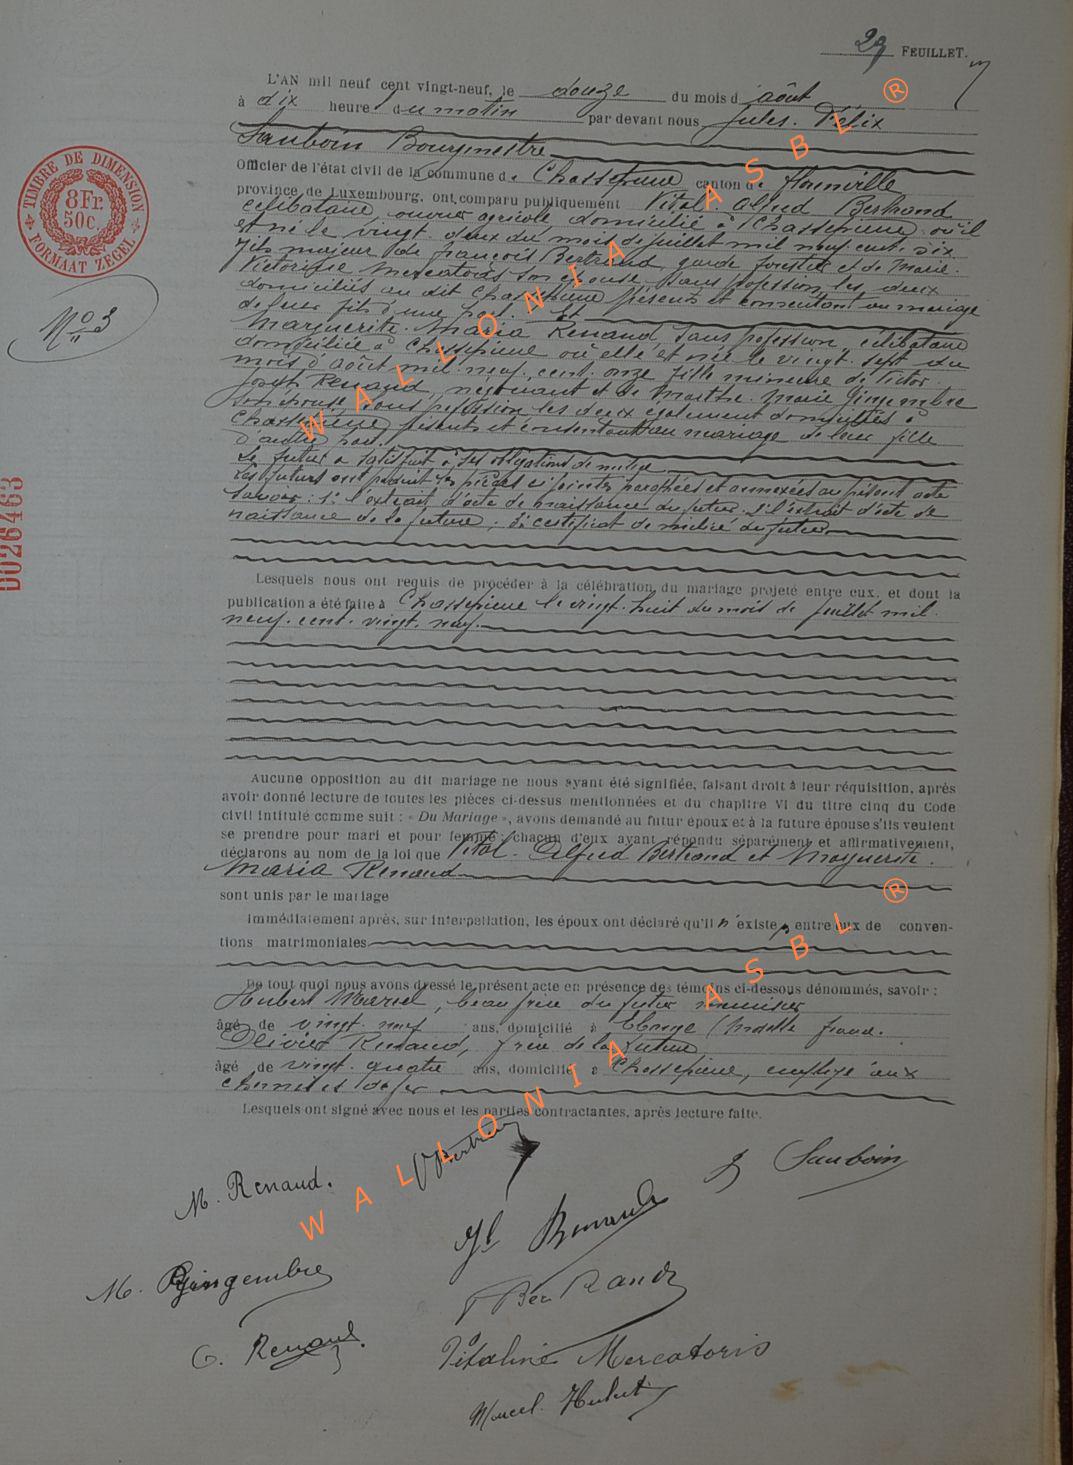 29 FEUILLET.
L'AN mil neuf cent vingt-neuf, le douze du mois d'août
à dix heure du matin par devant nous Jules. Félix
Sauboin Bourgmestre
Officier de l'état civil de la commune de Chassepierre canton de Florenville
province de Luxembourg, ont comparu publiquement Vital. Alfred Bertrand
célibataire, ouvrier agricole, domicilié à Chassepierre où il
est né le vingt. deux du mois de juillet mil neuf. cent. six
fils majeur de François Bertrand, garde forestier et de Marie.
Victorine Mercatoris son épouse, sans profession, les deux
domiciliés au dit Chassepierre présents et consentant au mariage
de leur fils d'une part. Et
Marguerite. Maria Renaud, sans profession, célibataire
domiciliée à Chassepierre où elle est née le vingt. sept du
mois d'août mil. neuf. cent. onze fille mineure de Victor.
Joseph Renaud, négociant et de Marthe. Marie Gingembre
son épouse, sans profession les deux également domiciliés à
Chassepierre, présents et consentant au mariage de leur fille
d'autre part.
Le futur a satisfait à ses obligations de milice
Les futurs ont produit les pièces ci jointes paraphées et annexées au présent acte
savoir: 1: l'extrait d'acte de naissance du futur. 2: l'extrait d'acte de
naissance de la future; 3: certificat de milice du futur
Lesquels nous ont requis de procéder à la célébration du mariage projeté entre eux, et dont la
publication a été faite à Chassepierre le vingt. huit du mois de juillet mil.
neuf. cent. vingt. neuf.
Aucune opposition au dit mariage ne nous ayant été signifiée, faisant droit à leur réquisition, après
avoir donné lecture de toutes les pièces ci-dessus mentionnées et du chapitre VI du titre cinq du Code
civil intitulé comme suit : « Du Mariage », avons demandé au futur époux et à la future épouse s'ils veulent
se prendre pour mari et pour femme; chacun d'eux ayant répondu séparément et affirmativement,
déclarons au nom de la loi que Vital. Alfred Bertrand et Marguerite.
Maria Renaud
sont unis par le mariage
Immédiatement après, sur interpellation, les époux ont déclaré qu'il n'existe p entre eux de conven-
tions matrimoniales
De tout quoi nous avons dressé le présent acte en présence des témoins ci-dessous dénommés, savoir :
Hubert Marcel, beau frère du futur menuisier
âgé de vingt. neuf ans, domicilié à Ebange (Moselle france.
Olivier Renaud, frère de la future
âgé de vingt. quatre ans, domicilié à Chassepierre, employé aux
chemins de fer
Lesquels ont signé avec nous et les parties contractantes, après lecture faite.
M. Renaud.
V Bertrand
J Sauboin
Renaud
M. Gingembre
F Bertrand
O. Renaud.
Vitaline Mercatoris
Marcel. Hubert
TIMBRE DE DIMENSION
8 Fr.
50c.
FORMAAT ZEGEL
No 3
D026463
WALLONIA ASBL ®
WALLONIA ASBL ®